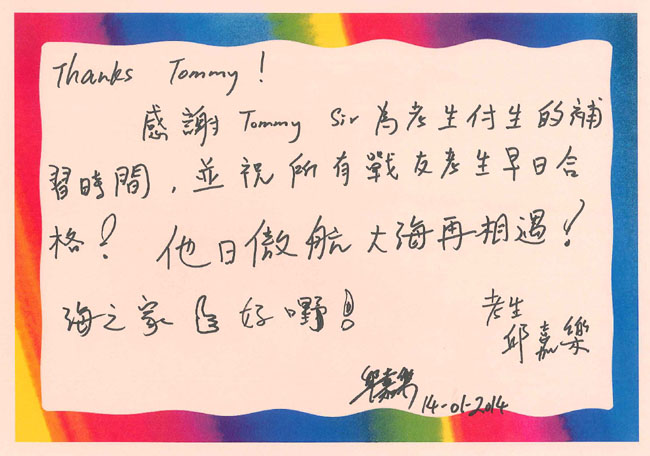 Thanks Tommy!
感謝 Tommy Sir 為考生付生的補
習時間，並祝所有戰友考生早日合
格！ 他日傲航大海再相遇！
海之家 好嘢！
考生
邱嘉樂
14-01-2014